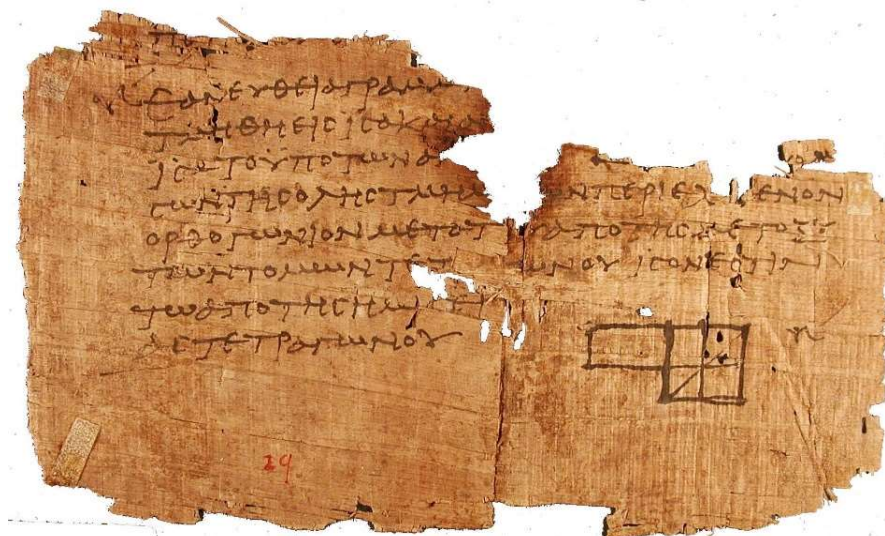 ΕΑΝΕΥΘΕΙΑΓΡΑΜΜ
ΤΜΗΘΗΕΙϹΙϹΑΚΑΙΑΝ
ΙϹΑΤΟΥΠΟΤΩΝΑ
ϹΩΝΤΗϹΟΛΗϹΤΜΗΜ ΝΠΕΡΙΕΧ ΕΝΟΝ
ΟΡΘΟΓΩΝΙΟΝΜΕΤΑΤ ΑΠΟΤΗϹΜΕΤΟΞΥ
ΤΩΝΤΟΜΩΝΤΕΤ ΩΝΟΥΙϹΟΝΕϹΤΙΝ
ΤΩΑΠΟΤΗϹΗΜΙ ΕΙ
ΑϹΤΕΤΡΑΓΩΝΟΥ
29